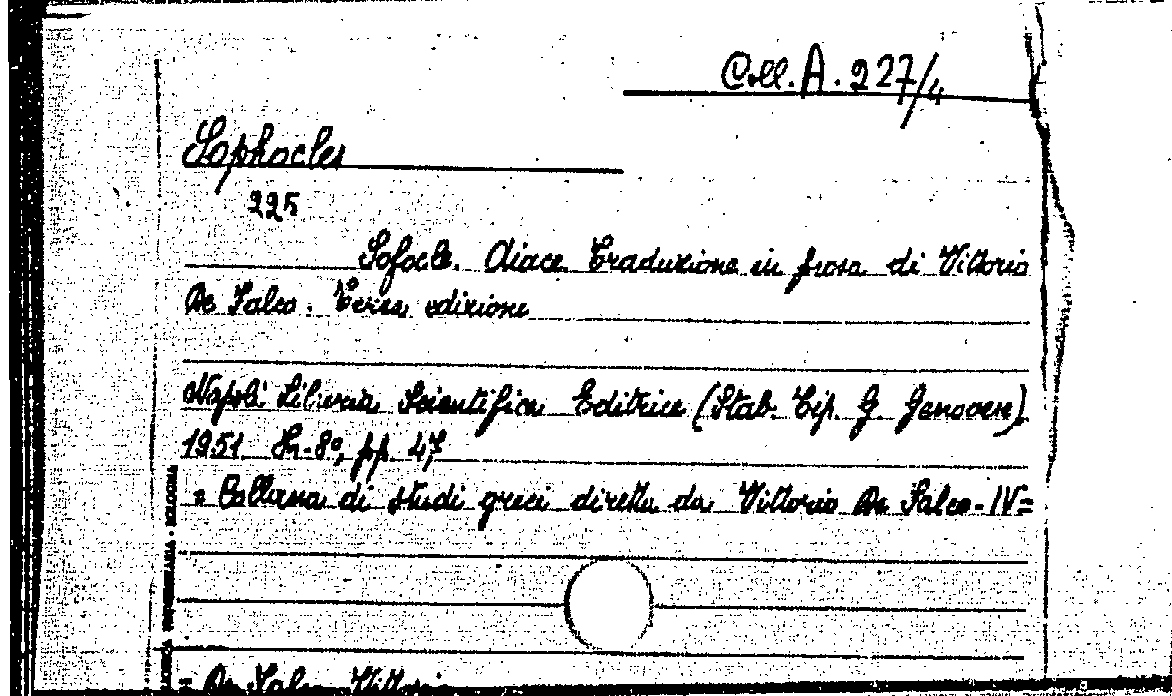 Coll. A. 227/4
Sophocles
225
Sofocle. Aiace. Traduzione in prosa di Vittorio
De Falco. Terza edizione
Napoli Libreria Scientifica Editrice (Stab. Tip. G. Genovese)
1951 In-8°, pp. 47
= Collana di studi greci diretta da Vittorio De Falco - IV =
De Falco Vittorio
BOLOGNA